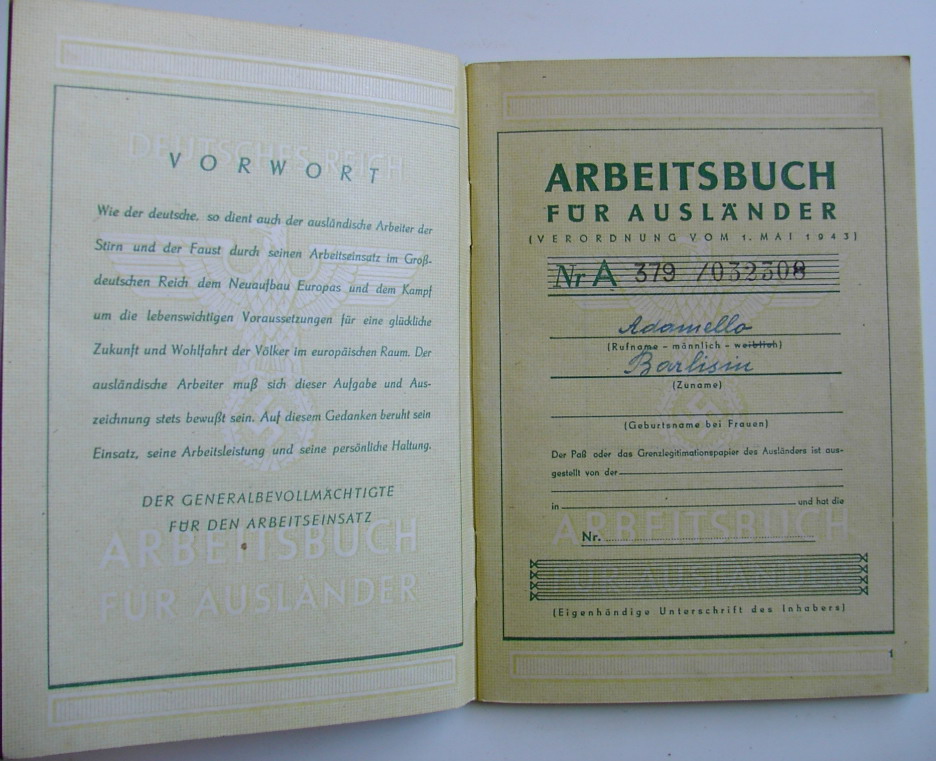 DEUTSCHES REICH
VORWORT
Wie der deutsche, so dient auch der ausländische Arbeiter der
Stirn und der Faust durch seinen Arbeitseinsatz im Groß-
deutschen Reich dem Neuaufbau Europas und dem Kampf
um die lebenswichtigen Voraussetzungen für eine glückliche
Zukunft und Wohlfahrt der Völker im europäischen Raum. Der
ausländische Arbeiter muß sich dieser Aufgabe und Aus-
zeichnung stets bewußt sein. Auf diesem Gedanken beruht sein
Einsatz, seine Arbeitsleistung und seine persönliche Haltung.
DER GENERALBEVOLLMÄCHTIGTE
FÜR DEN ARBEITSEINSATZ
ARBEITSBUCH
FÜR AUSLÄNDER
ARBEITSBUCH
FÜR AUSLÄNDER
(VERORDNUNG VOM 1. MAI 1943)
Nr A 379 /032308
Adamello
(Rufname - männlich - weiblich)
Barlisin
(Zuname)
(Geburtsname bei Frauen)
Der Paß oder das Grenzlegitimationspapier des Ausländers ist aus-
gestellt von der
in und hat die
ARBEITSBUCH
Nr.
FÜR AUSLÄNDER
(Eigenhändige Unterschrift des Inhabers)
1